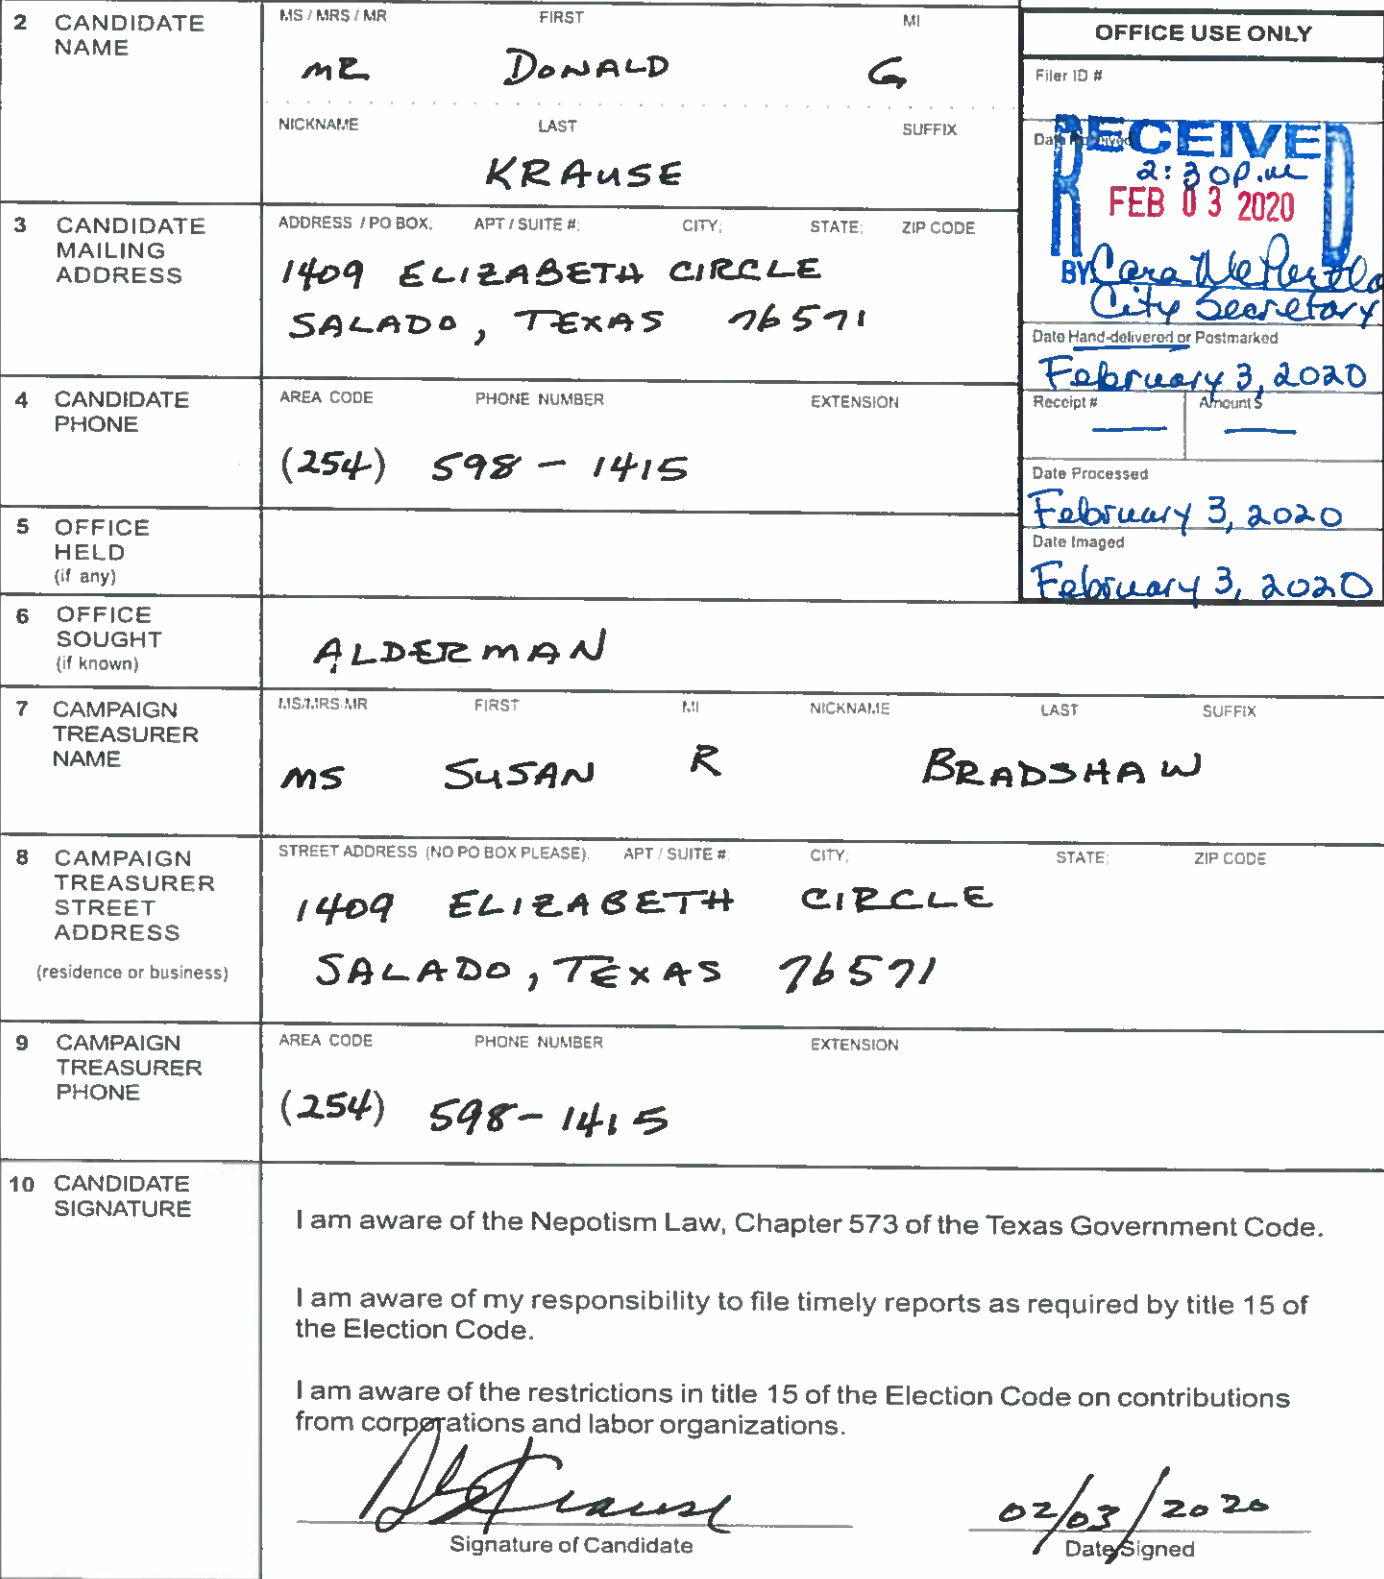 2 CANDIDATE NAME
MS / MRS / MR FIRST MI
MR DONALD G
NICKNAME LAST SUFFIX
KRAUSE
OFFICE USE ONLY
Filer ID #
Date Received
RECEIVED
2:30 p.m
FEB 03 2020
BY: Cara
City Secretary
Date Hand-delivered or Postmarked
February 3, 2020
Receipt # Amount $
— —
Date Processed
February 3, 2020
Date Imaged
February 3, 2020
3 CANDIDATE MAILING ADDRESS
ADDRESS / PO BOX; APT / SUITE #; CITY; STATE; ZIP CODE
1409 ELIZABETH CIRCLE
SALADO, TEXAS 76571
4 CANDIDATE PHONE
AREA CODE PHONE NUMBER EXTENSION
(254) 598 - 1415
5 OFFICE HELD
(if any)
6 OFFICE SOUGHT
(if known)
ALDERMAN
7 CAMPAIGN TREASURER NAME
MS/MRS/MR FIRST MI NICKNAME LAST SUFFIX
MS SUSAN R BRADSHAW
8 CAMPAIGN TREASURER STREET ADDRESS
(residence or business)
STREET ADDRESS (NO PO BOX PLEASE); APT / SUITE #; CITY; STATE; ZIP CODE
1409 ELIZABETH CIRCLE
SALADO, TEXAS 76571
9 CAMPAIGN TREASURER PHONE
AREA CODE PHONE NUMBER EXTENSION
(254) 598-1415
10 CANDIDATE SIGNATURE
I am aware of the Nepotism Law, Chapter 573 of the Texas Government Code.
I am aware of my responsibility to file timely reports as required by title 15 of
the Election Code.
I am aware of the restrictions in title 15 of the Election Code on contributions
from corporations and labor organizations.
Krause 02/03/2020
Signature of Candidate Date Signed